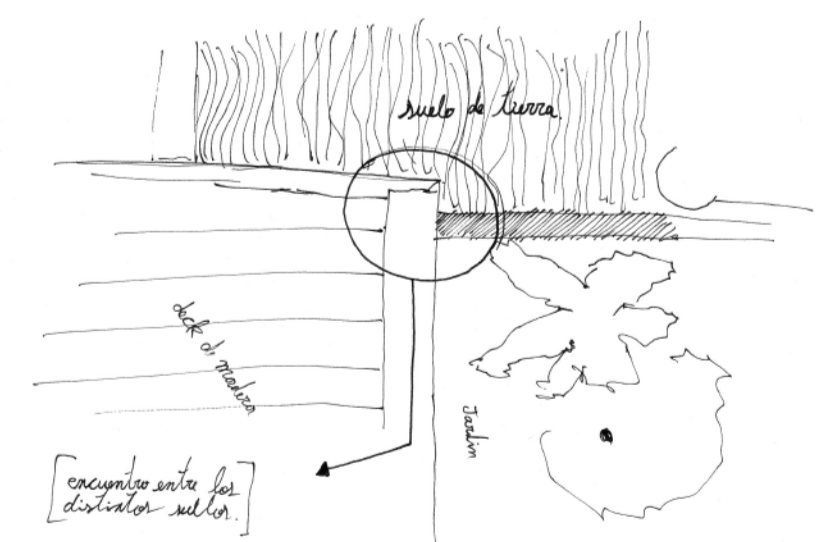 suelo de tierra.
deck de madera
Jardin
[encuentro entre los
distintos suelos.]